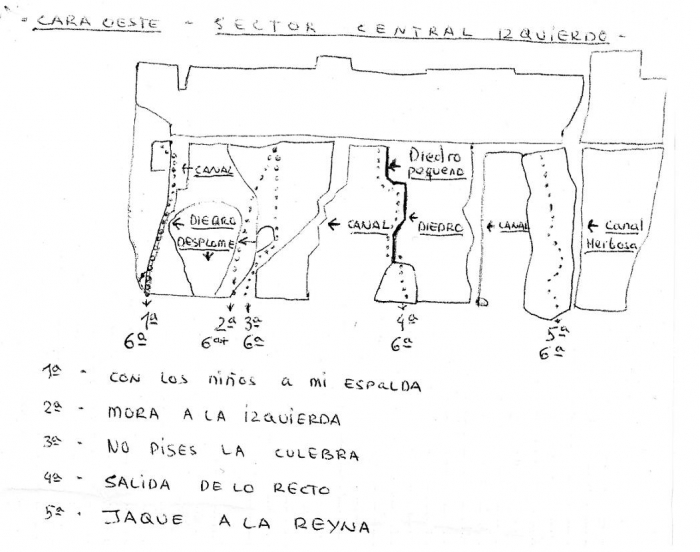 - CARA OESTE - SECTOR CENTRAL IZQUIERDO -
Diedro
pequeño
← CANAL
← DIEDRO
DESPLOME ←
← CANAL
← DIEDRO
← CANAL
← Canal
Herbosa
1ª
6ª
2ª
6ª+
3ª
6ª
4ª
6ª
5ª
6ª
1ª - CON LOS NIÑOS A MI ESPALDA
2ª - MORA A LA IZQUIERDA
3ª - NO PISES LA CULEBRA
4ª - SALIDA DE LO RECTO
5ª - JAQUE A LA REYNA